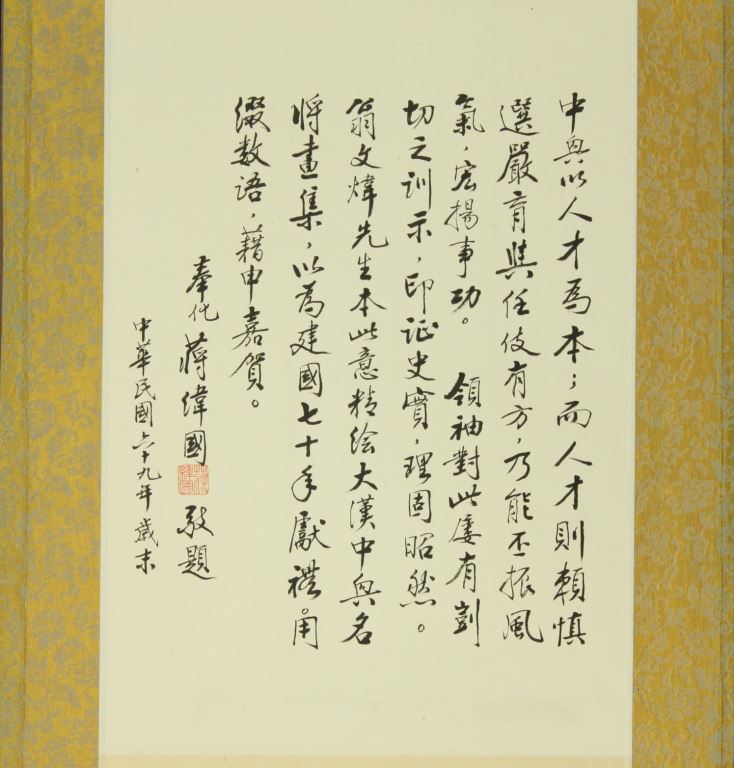 中興以人才為本；而人才則賴慎
選嚴育與任伎有方，乃能丕振風
氣，宏揚事功。　領袖對此屢有剴
切之訓示，印証史實，理固昭然。
翁文煒先生本此意精绘大漢中興名
將畫集，以為建國七十年獻禮。用
綴数語，藉申嘉賀。
奉化　蔣緯國　敬題
中華民國六十九年歲末